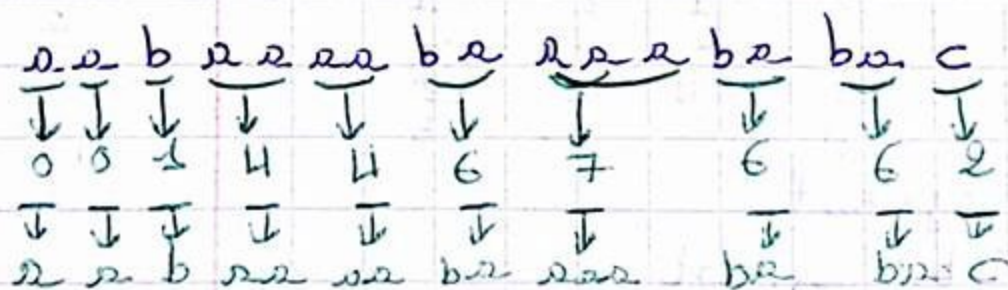 a a b a a a a b a a a a b a b a c
0 0 1 4 4 6 7 6 6 2
a a b aa aa ba aaa ba ba c